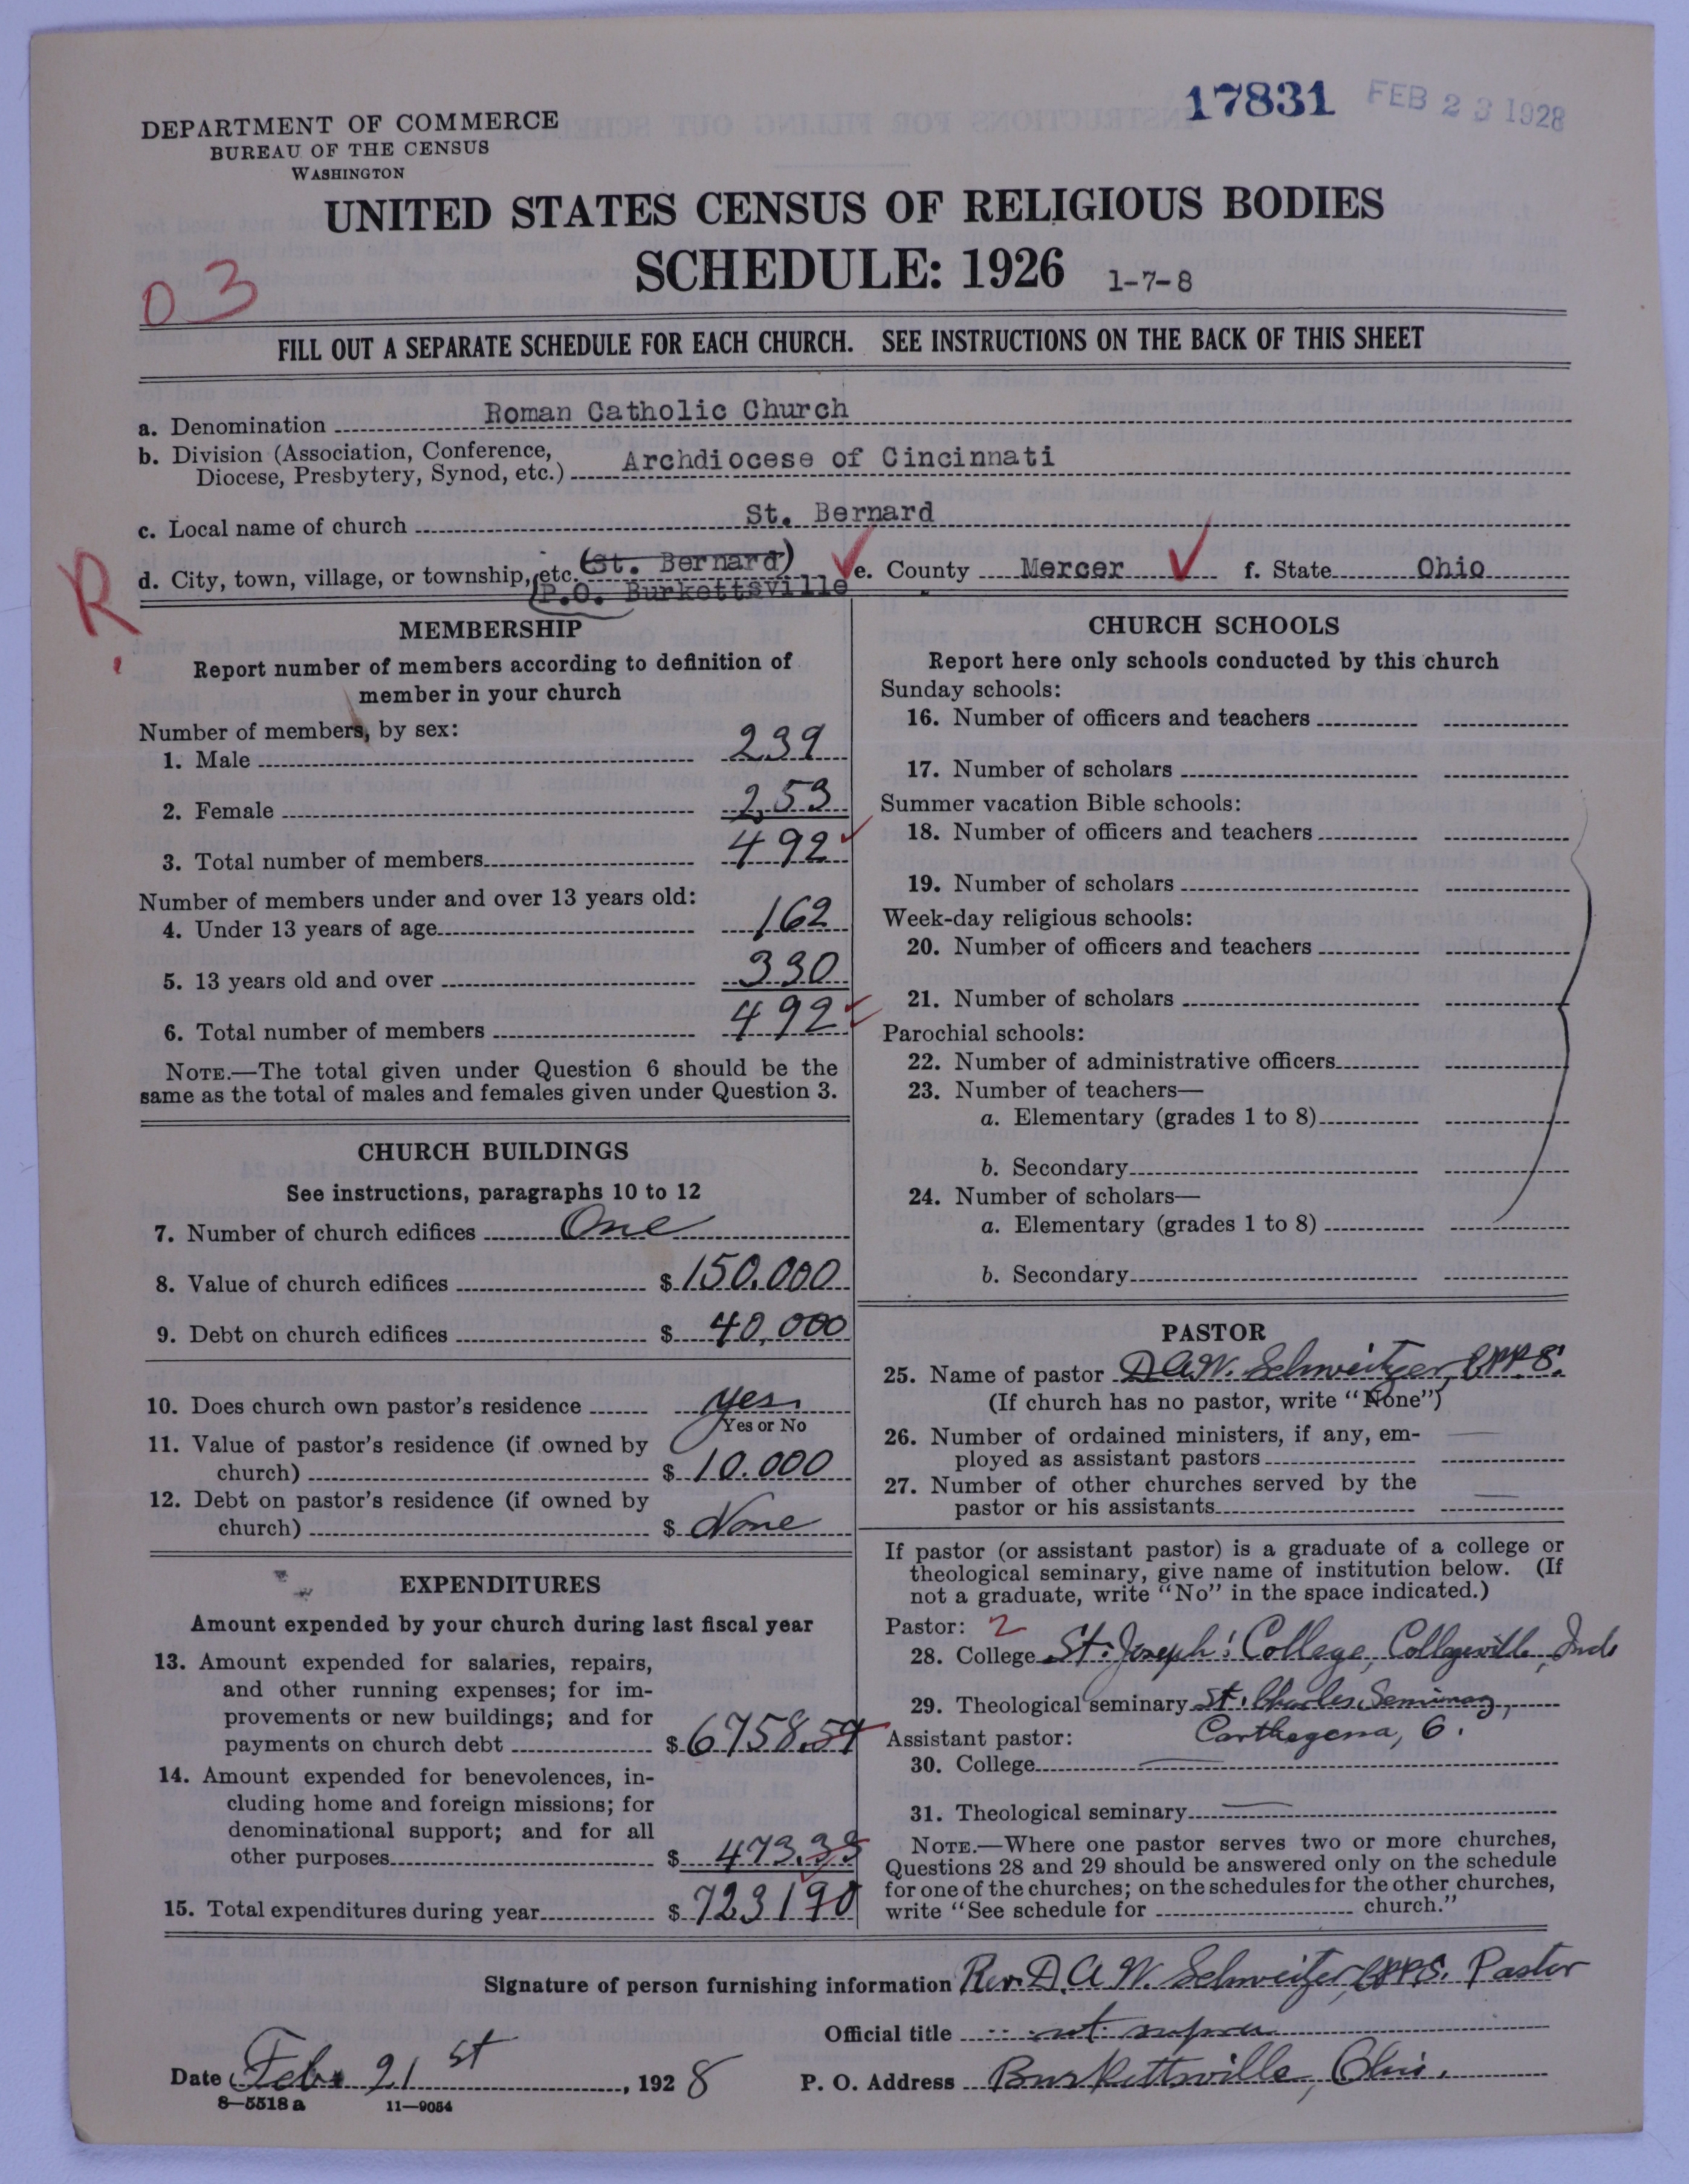 17831 FEB 23 1928
DEPARTMENT OF COMMERCE
BUREAU OF THE CENSUS
WASHINGTON
UNITED STATES CENSUS OF RELIGIOUS BODIES
SCHEDULE: 1926 1-7-8
03
FILL OUT A SEPARATE SCHEDULE FOR EACH CHURCH. SEE INSTRUCTIONS ON THE BACK OF THIS SHEET
a. Denomination Roman Catholic Church
b. Division (Association, Conference,
Diocese, Presbytery, Synod, etc.) Archdiocese of Cincinnati
c. Local name of church St. Bernard
R.
d. City, town, village, or township, etc. (St. Bernard) e. County Mercer f. State Ohio
P.O. Burkettsville
MEMBERSHIP
Report number of members according to definition of
member in your church
Number of members, by sex:
1. Male 239
2. Female 253
3. Total number of members 492
Number of members under and over 13 years old:
4. Under 13 years of age 162
5. 13 years old and over 330
6. Total number of members 492
NOTE.—The total given under Question 6 should be the
same as the total of males and females given under Question 3.
CHURCH BUILDINGS
See instructions, paragraphs 10 to 12
7. Number of church edifices One
8. Value of church edifices $ 150.000
9. Debt on church edifices $ 40,000
10. Does church own pastor's residence yes
Yes or No
11. Value of pastor's residence (if owned by
church) $ 10.000
12. Debt on pastor's residence (if owned by
church) $ None
EXPENDITURES
Amount expended by your church during last fiscal year
13. Amount expended for salaries, repairs,
and other running expenses; for im-
provements or new buildings; and for
payments on church debt $ 6758.57
14. Amount expended for benevolences, in-
cluding home and foreign missions; for
denominational support; and for all
other purposes $ 473.33
15. Total expenditures during year $ 723190
CHURCH SCHOOLS
Report here only schools conducted by this church
Sunday schools:
16. Number of officers and teachers
17. Number of scholars
Summer vacation Bible schools:
18. Number of officers and teachers
19. Number of scholars
Week-day religious schools:
20. Number of officers and teachers
21. Number of scholars
Parochial schools:
22. Number of administrative officers
23. Number of teachers—
a. Elementary (grades 1 to 8)
b. Secondary
24. Number of scholars—
a. Elementary (grades 1 to 8)
b. Secondary
PASTOR
25. Name of pastor D.A.W. Schweitzer, C.PP.S.
(If church has no pastor, write "None")
26. Number of ordained ministers, if any, em-
ployed as assistant pastors —
27. Number of other churches served by the
pastor or his assistants —
If pastor (or assistant pastor) is a graduate of a college or
theological seminary, give name of institution below. (If
not a graduate, write "No" in the space indicated.)
Pastor: 2
28. College St. Joseph's College, Collegeville, Ind
29. Theological seminary St. Charles Seminary,
Assistant pastor: Carthagena, O.
30. College —
31. Theological seminary —
NOTE.—Where one pastor serves two or more churches,
Questions 28 and 29 should be answered only on the schedule
for one of the churches; on the schedules for the other churches,
write "See schedule for church."
Signature of person furnishing information Rev. D. A. W. Schweitzer, C.PP.S. Pastor
Official title ut supra
Date Feb. 21st, 1928 P. O. Address Burkettsville, Ohio.
8—5518 a 11—9054